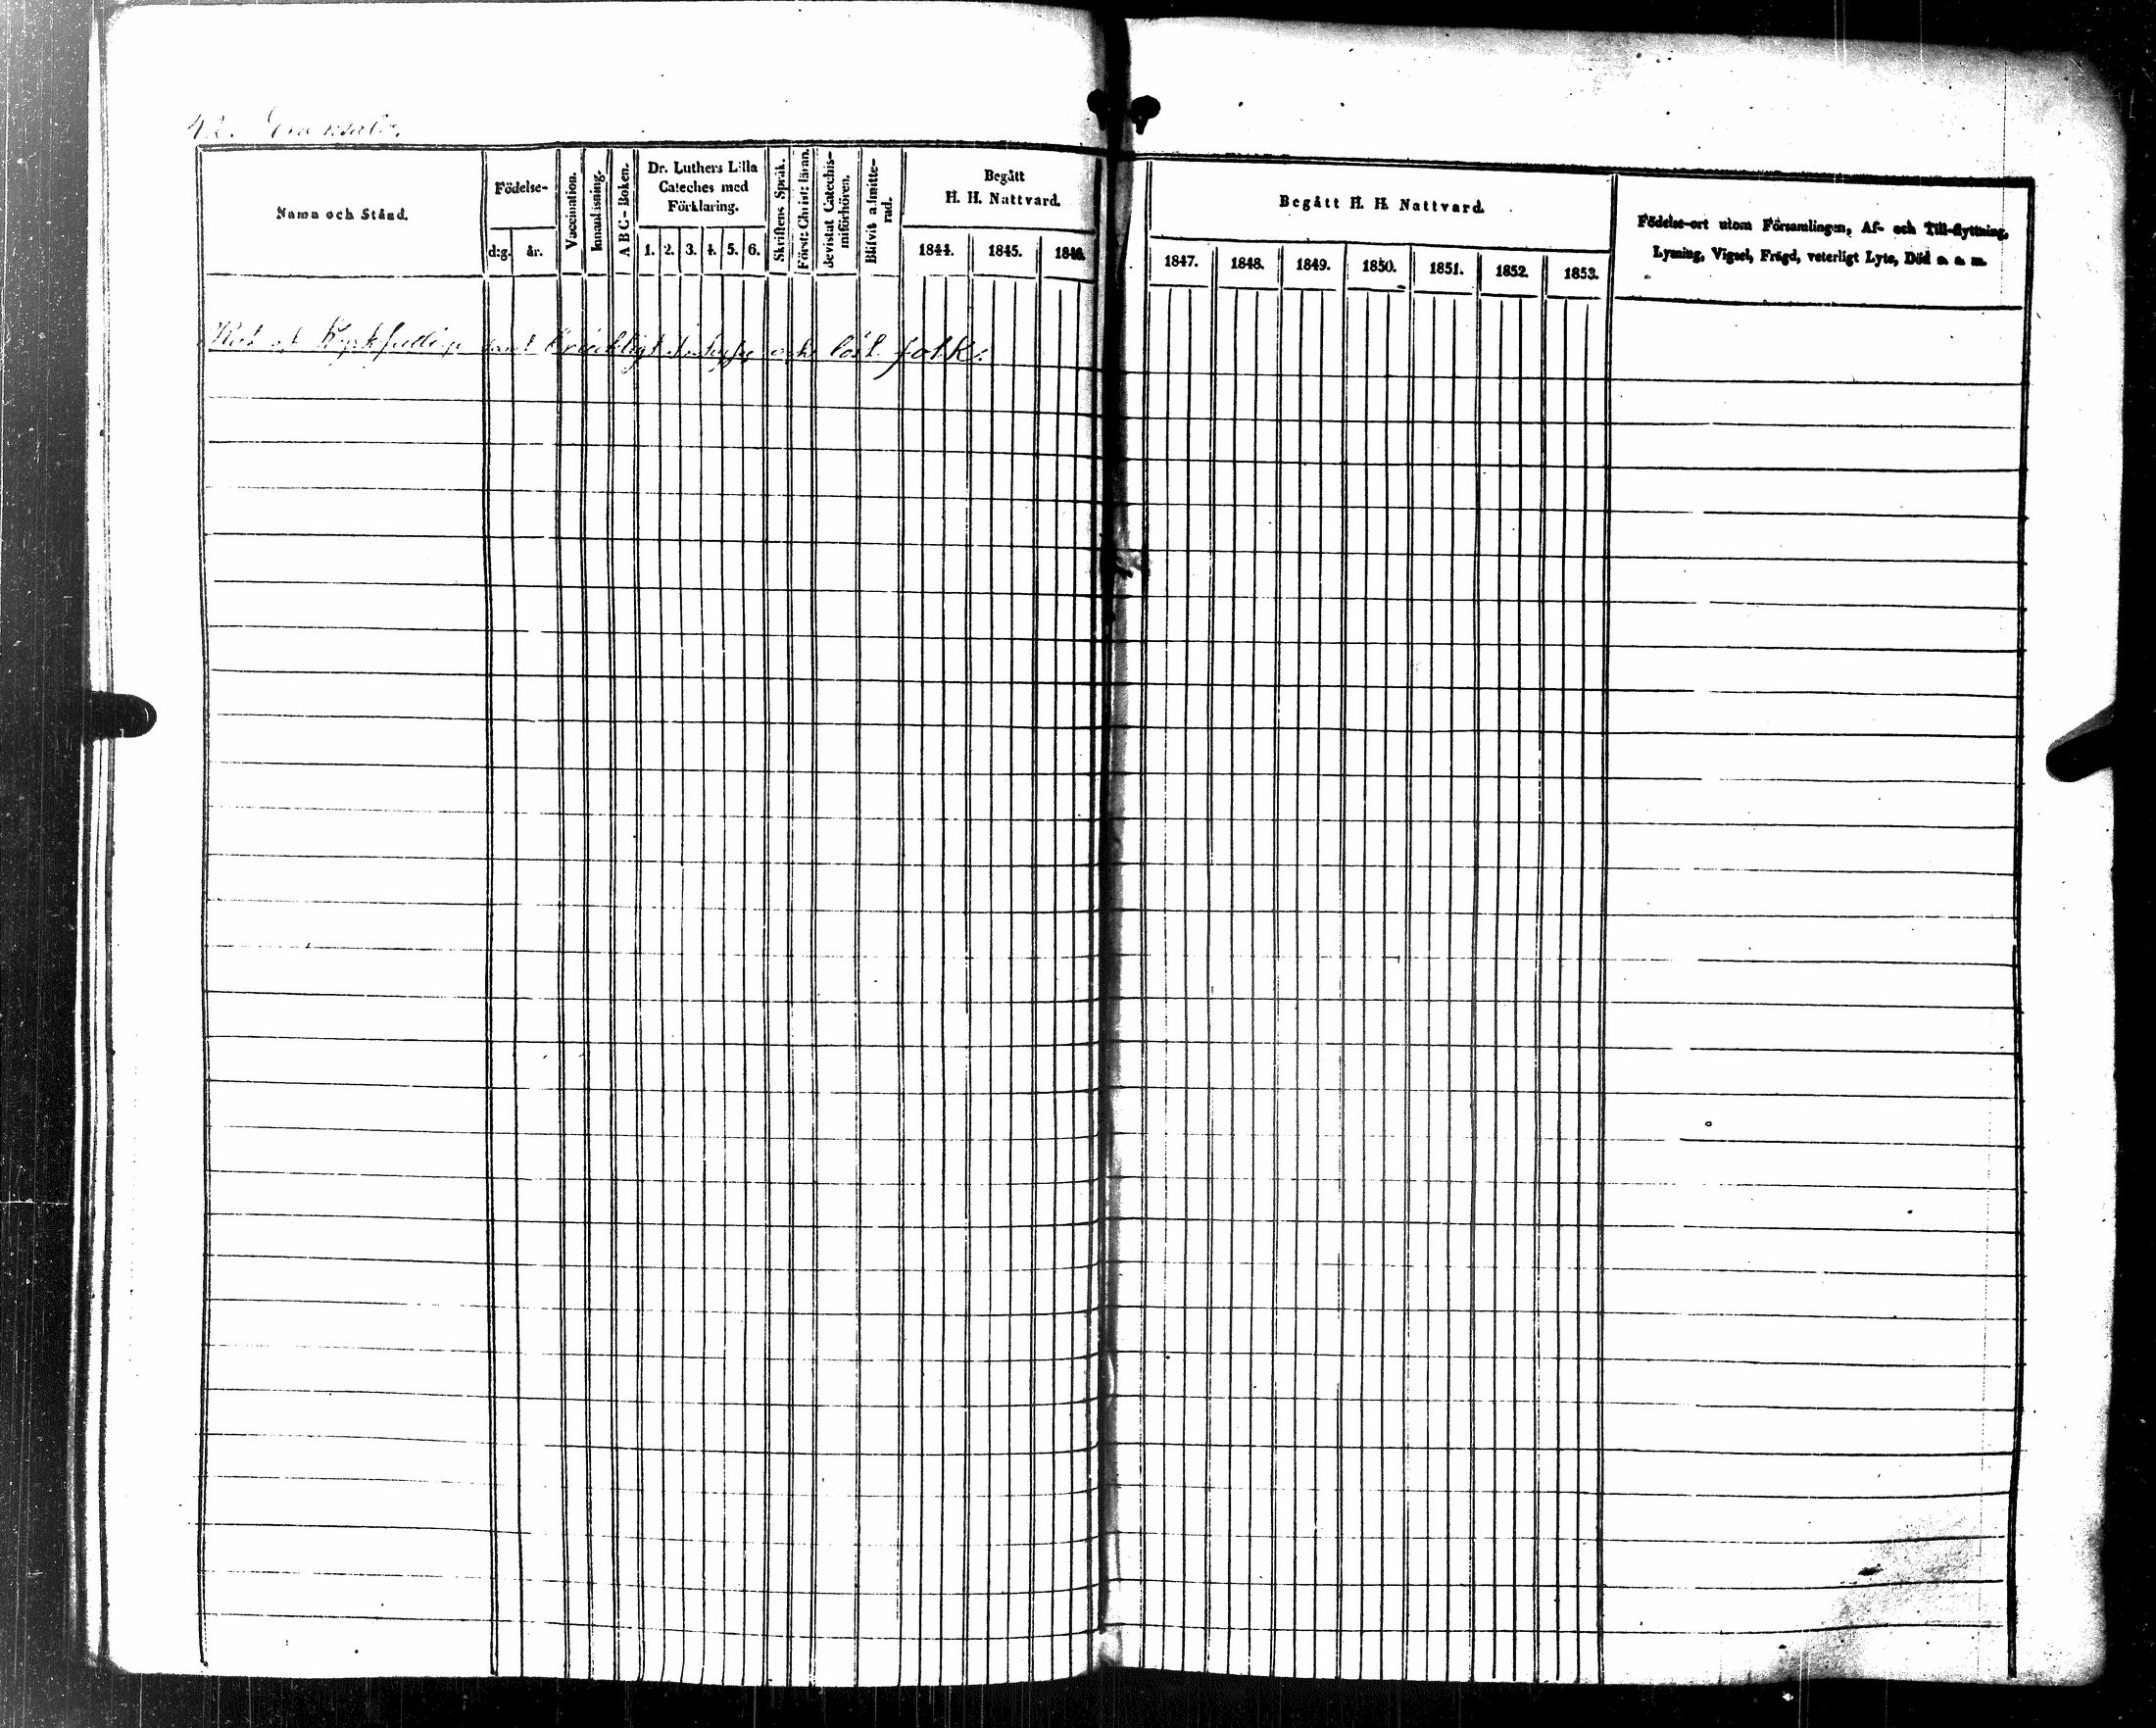 42.
Namn och Stånd.
Födelse-
d:g.
år.
Vaccination.
Innanläsning.
A B C - Boken.
Dr. Luthers Lilla
Cateches med
Förklaring.
1. 2. 3. 4. 5. 6.
Skriftens Språk.
Förstt: Christ: läran.
Bevistat Catechis-
miförhören.
Blifvit admitte-
rad.
Begått
H. H. Nattvard.
1844. 1845. 1846.
Begått H. H. Nattvard.
1847. 1848. 1849. 1850. 1851. 1852. 1853.
Födelse-ort utom Församlingen, Af- och Till-flyttning,
Lysning, Vigsel, Frägd, veterligt Lyte, Död o. s. m.
samt och löst folk.